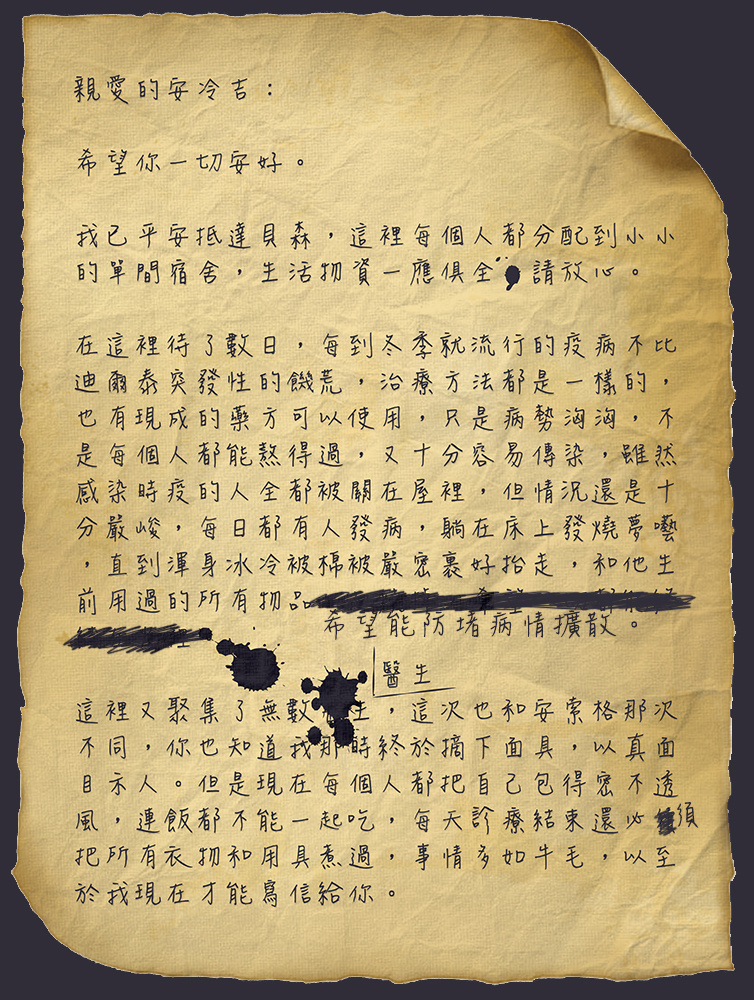 親愛的安冷吉：
希望你一切安好。
我已平安抵達貝森，這裡每個人都分配到小小
的單間宿舍，生活物資一應俱全，請放心。
在這裡待了數日，每到冬季就流行的疫病不比
迪爾泰突發性的饑荒，治療方法都是一樣的，
也有現成的藥方可以使用，只是病勢洶洶，不
是每個人都能熬得過，又十分容易傳染，雖然
感染時疫的人全都被關在屋裡，但情況還是十
分嚴峻，每日都有人發病，躺在床上發燒夢囈
，直到渾身冰冷被棉被嚴密裹好抬走，和他生
前用過的所有物品
希望能防堵病情擴散。
醫生
這裡又聚集了無數 生，這次也和安索格那次
不同，你也知道我那時終於摘下面具，以真面
目示人。但是現在每個人都把自己包得密不透
風，連飯都不能一起吃，每天診療結束還必須
把所有衣物和用具煮過，事情多如牛毛，以至
於我現在才能寫信給你。